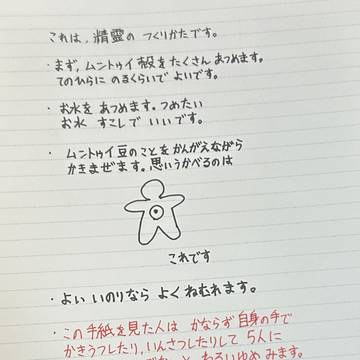 これは、精霊の つくりかたです。
・まず、ムントゥイ殻をたくさん あつめます。
てのひらに のるくらいで よいです。
・お水を あつめます。つめたい
お水 すこしで いいです。
・ムントゥイ豆のことを かんがえながら
かきまぜます。思いうかべるのは
これです
・よい いのりなら よく ねむれます。
・この手紙を見た人は かならず 自身の手で
かきうつしたり、いんさつしたりして 5人に
わるいゆめ みます。